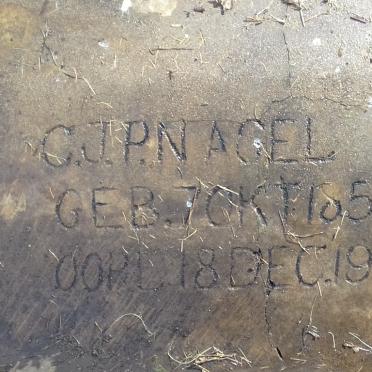 C.J.P.NAGEL
GEB.7OKT.185
OORL.18DEC.19